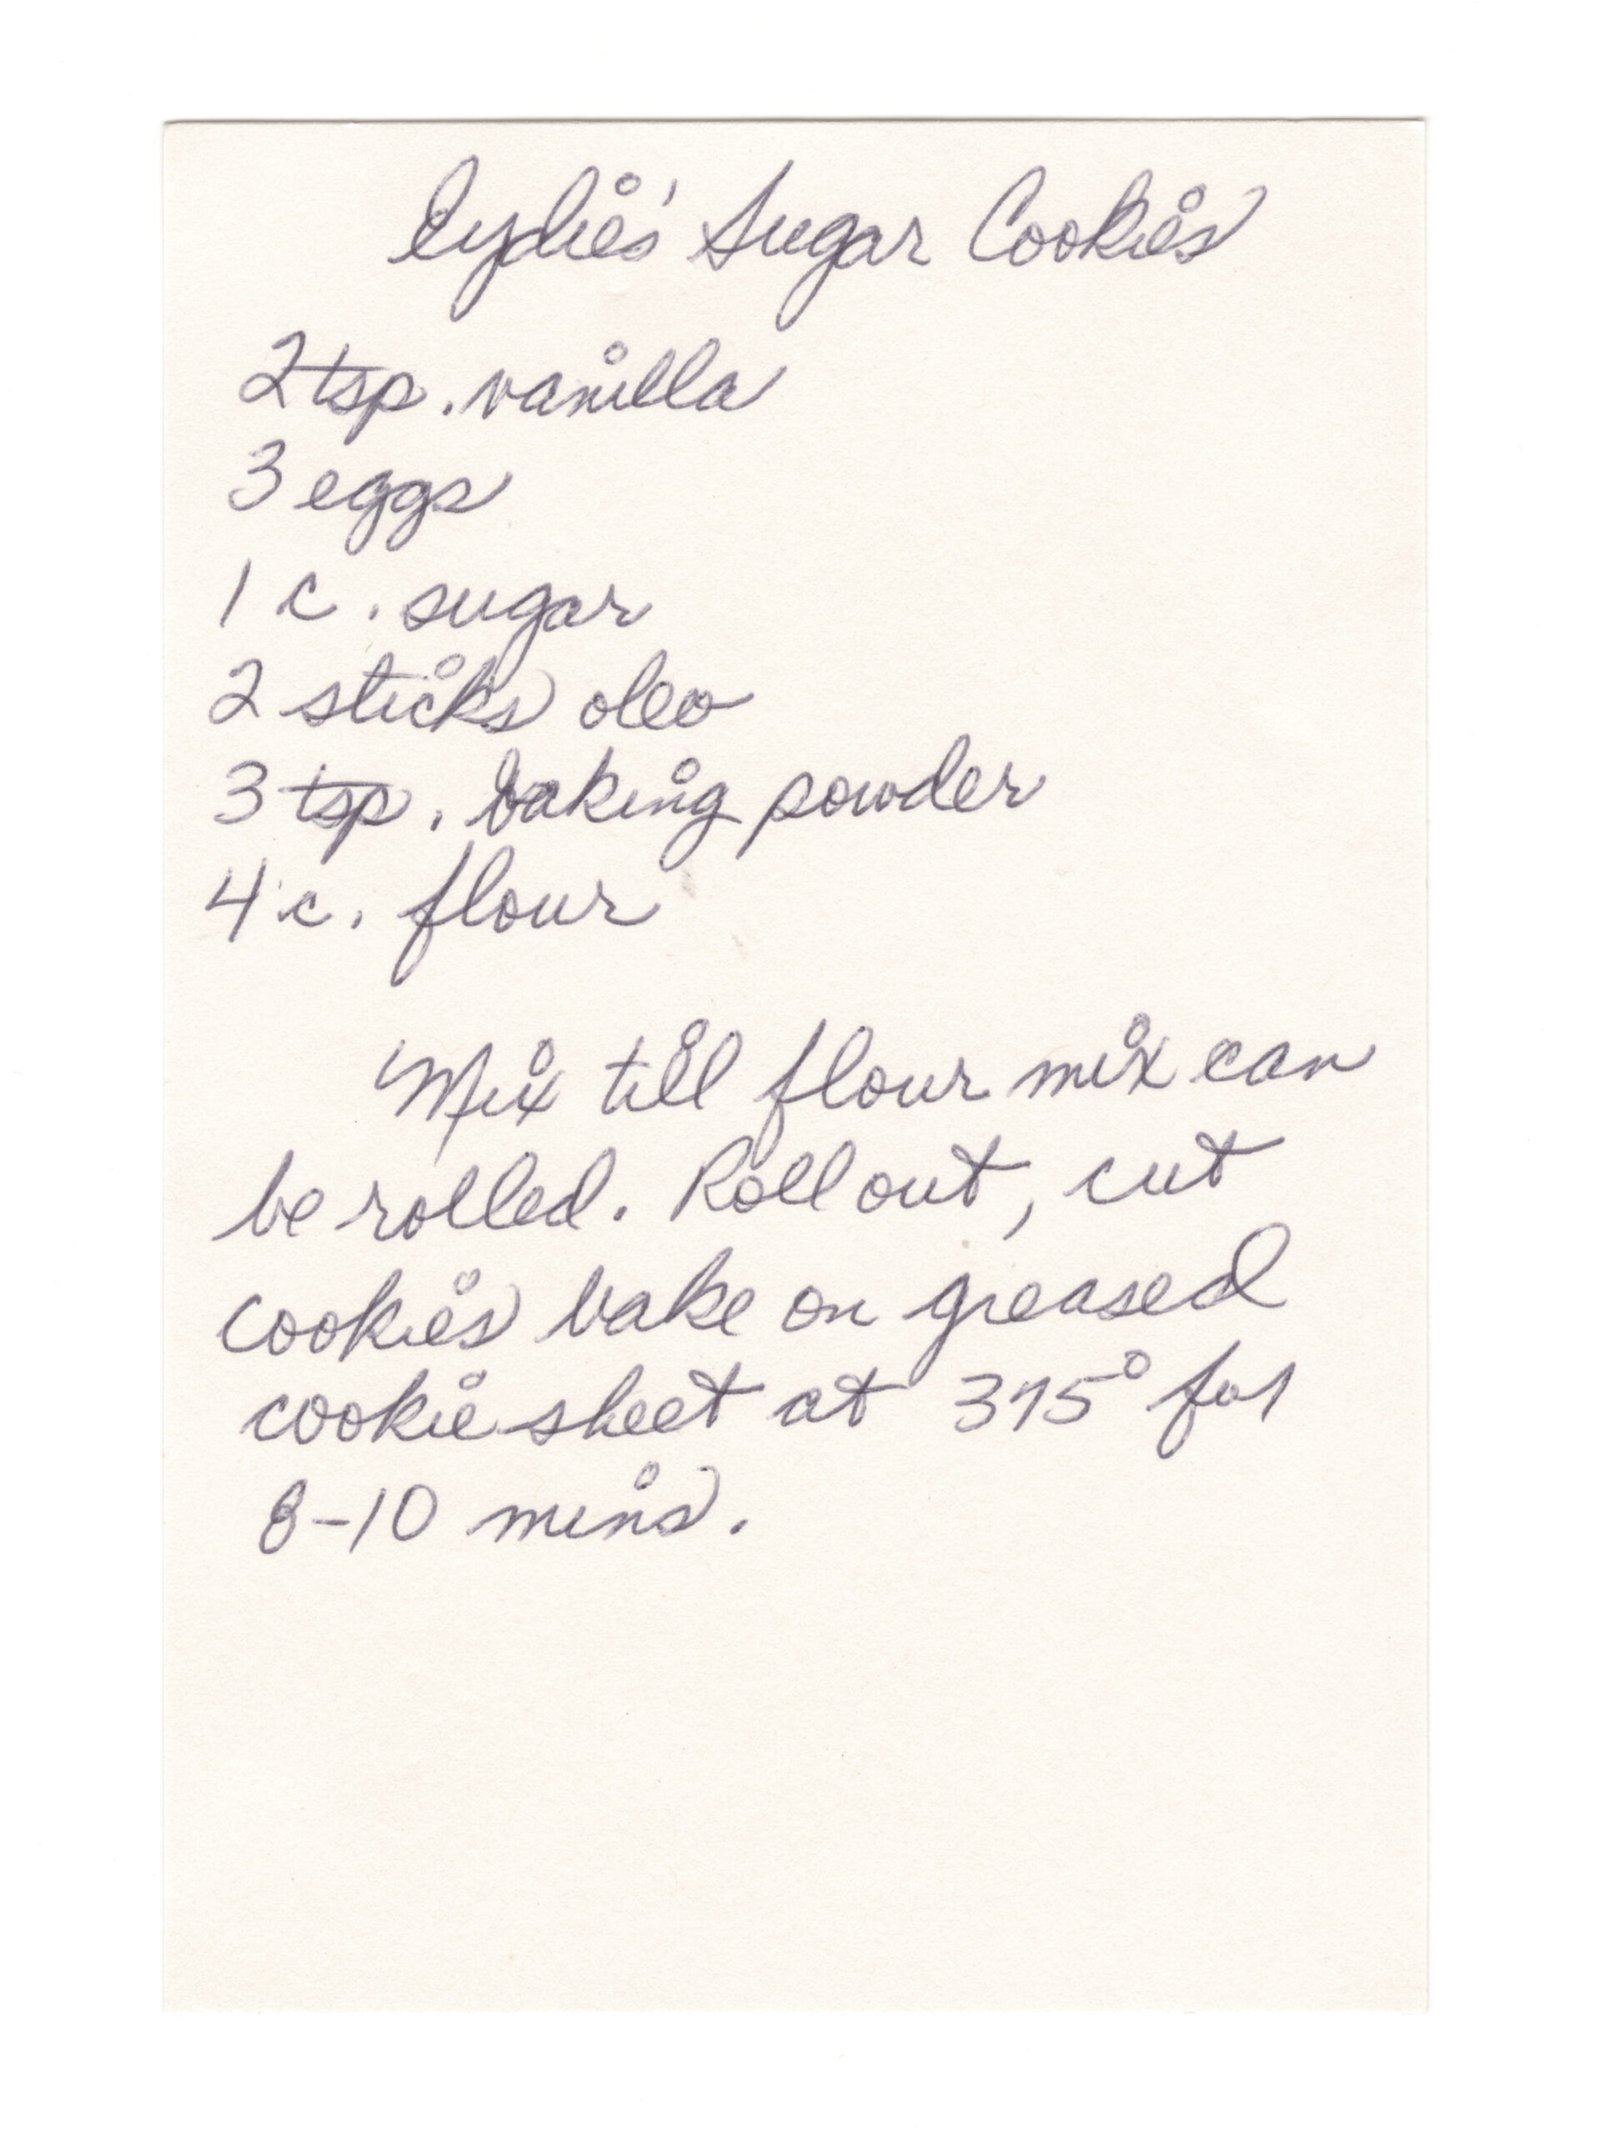 Lydie's Sugar Cookies
2 tsp. vanilla
3 eggs
1 c. sugar
2 sticks oleo
3 tsp. baking powder
4 c. flour
Mix till flour mix can
be rolled. Roll out, cut
cookies bake on greased
cookie sheet at 375° for
8-10 mins.